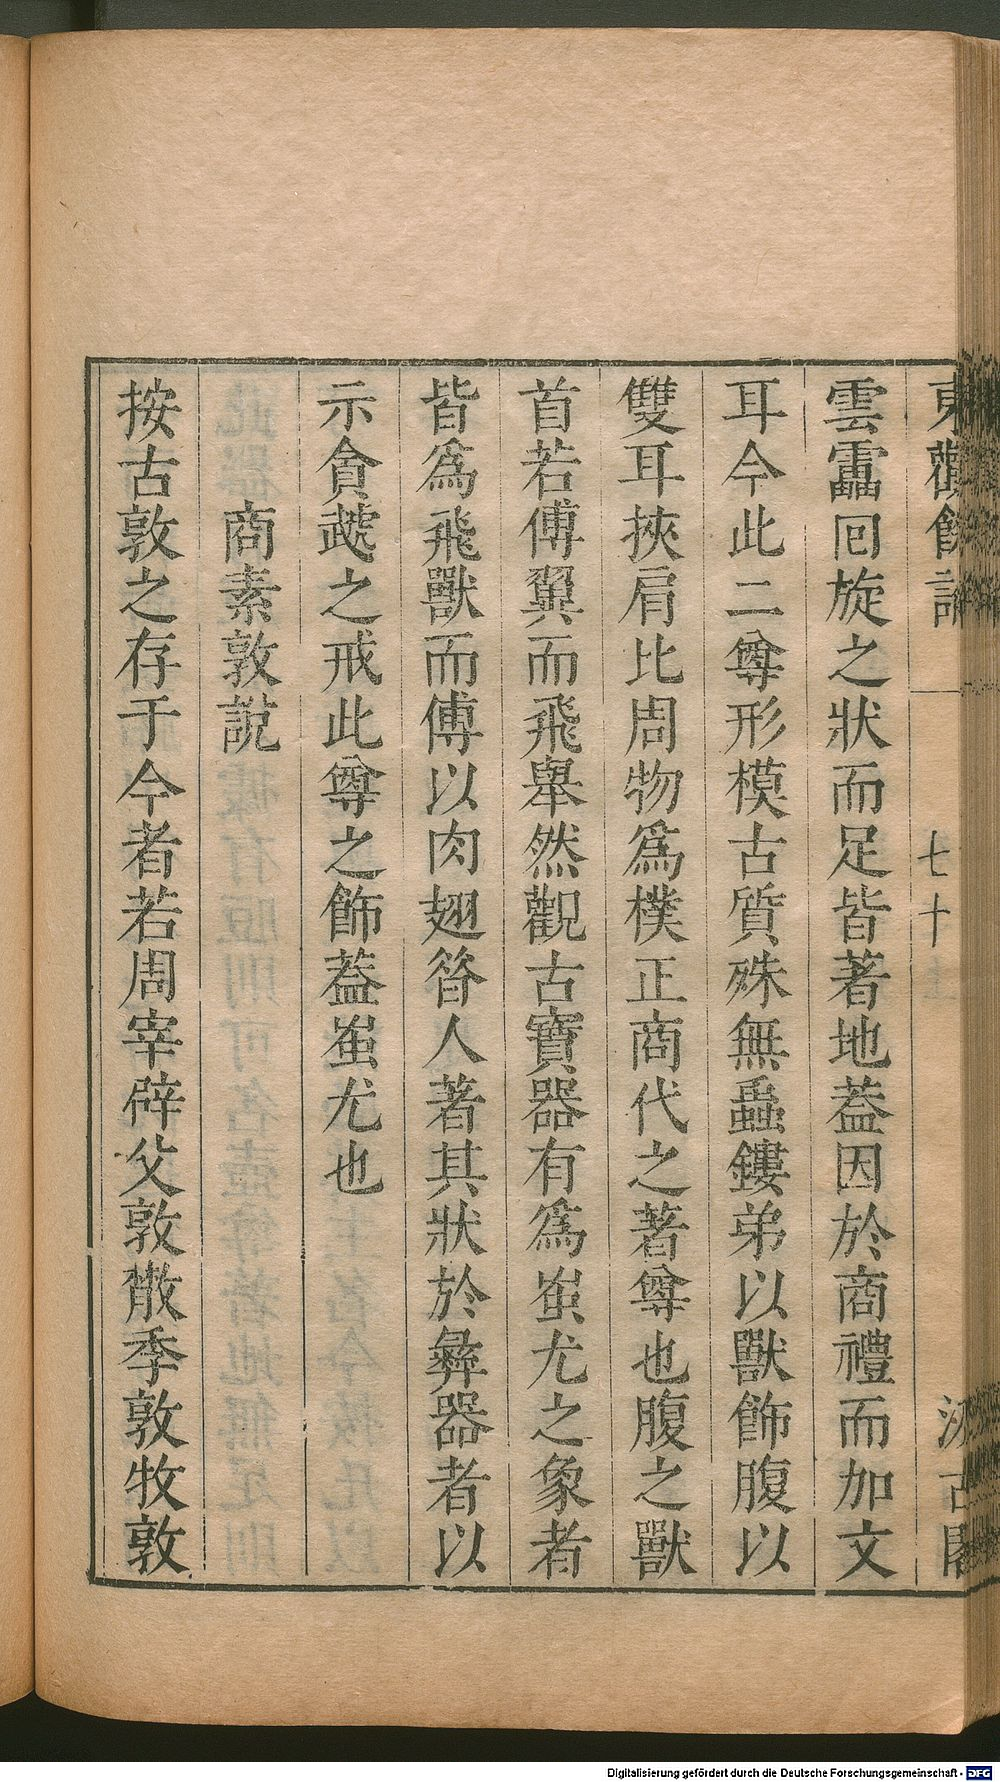 東觀餘論
七十
汲古閣
雲靁回旋之狀而足皆著地葢因於商禮而加文
耳今此二尊形模古質殊無蟲鏤弟以獸飾腹以
雙耳挾肩比周物爲樸正商代之著尊也腹之獸
首若傅翼而飛舉然觀古寶器有爲蚩尤之象者
皆爲飛獸而傅以肉翅昝人著其狀於彝器者以
示貪虣之戒此尊之飾葢蚩尤也
商素敦說
按古敦之存于今者若周宰辟父敦散季敦牧敦
Digitalisierung gefördert durch die Deutsche Forschungsgemeinschaft - DFG